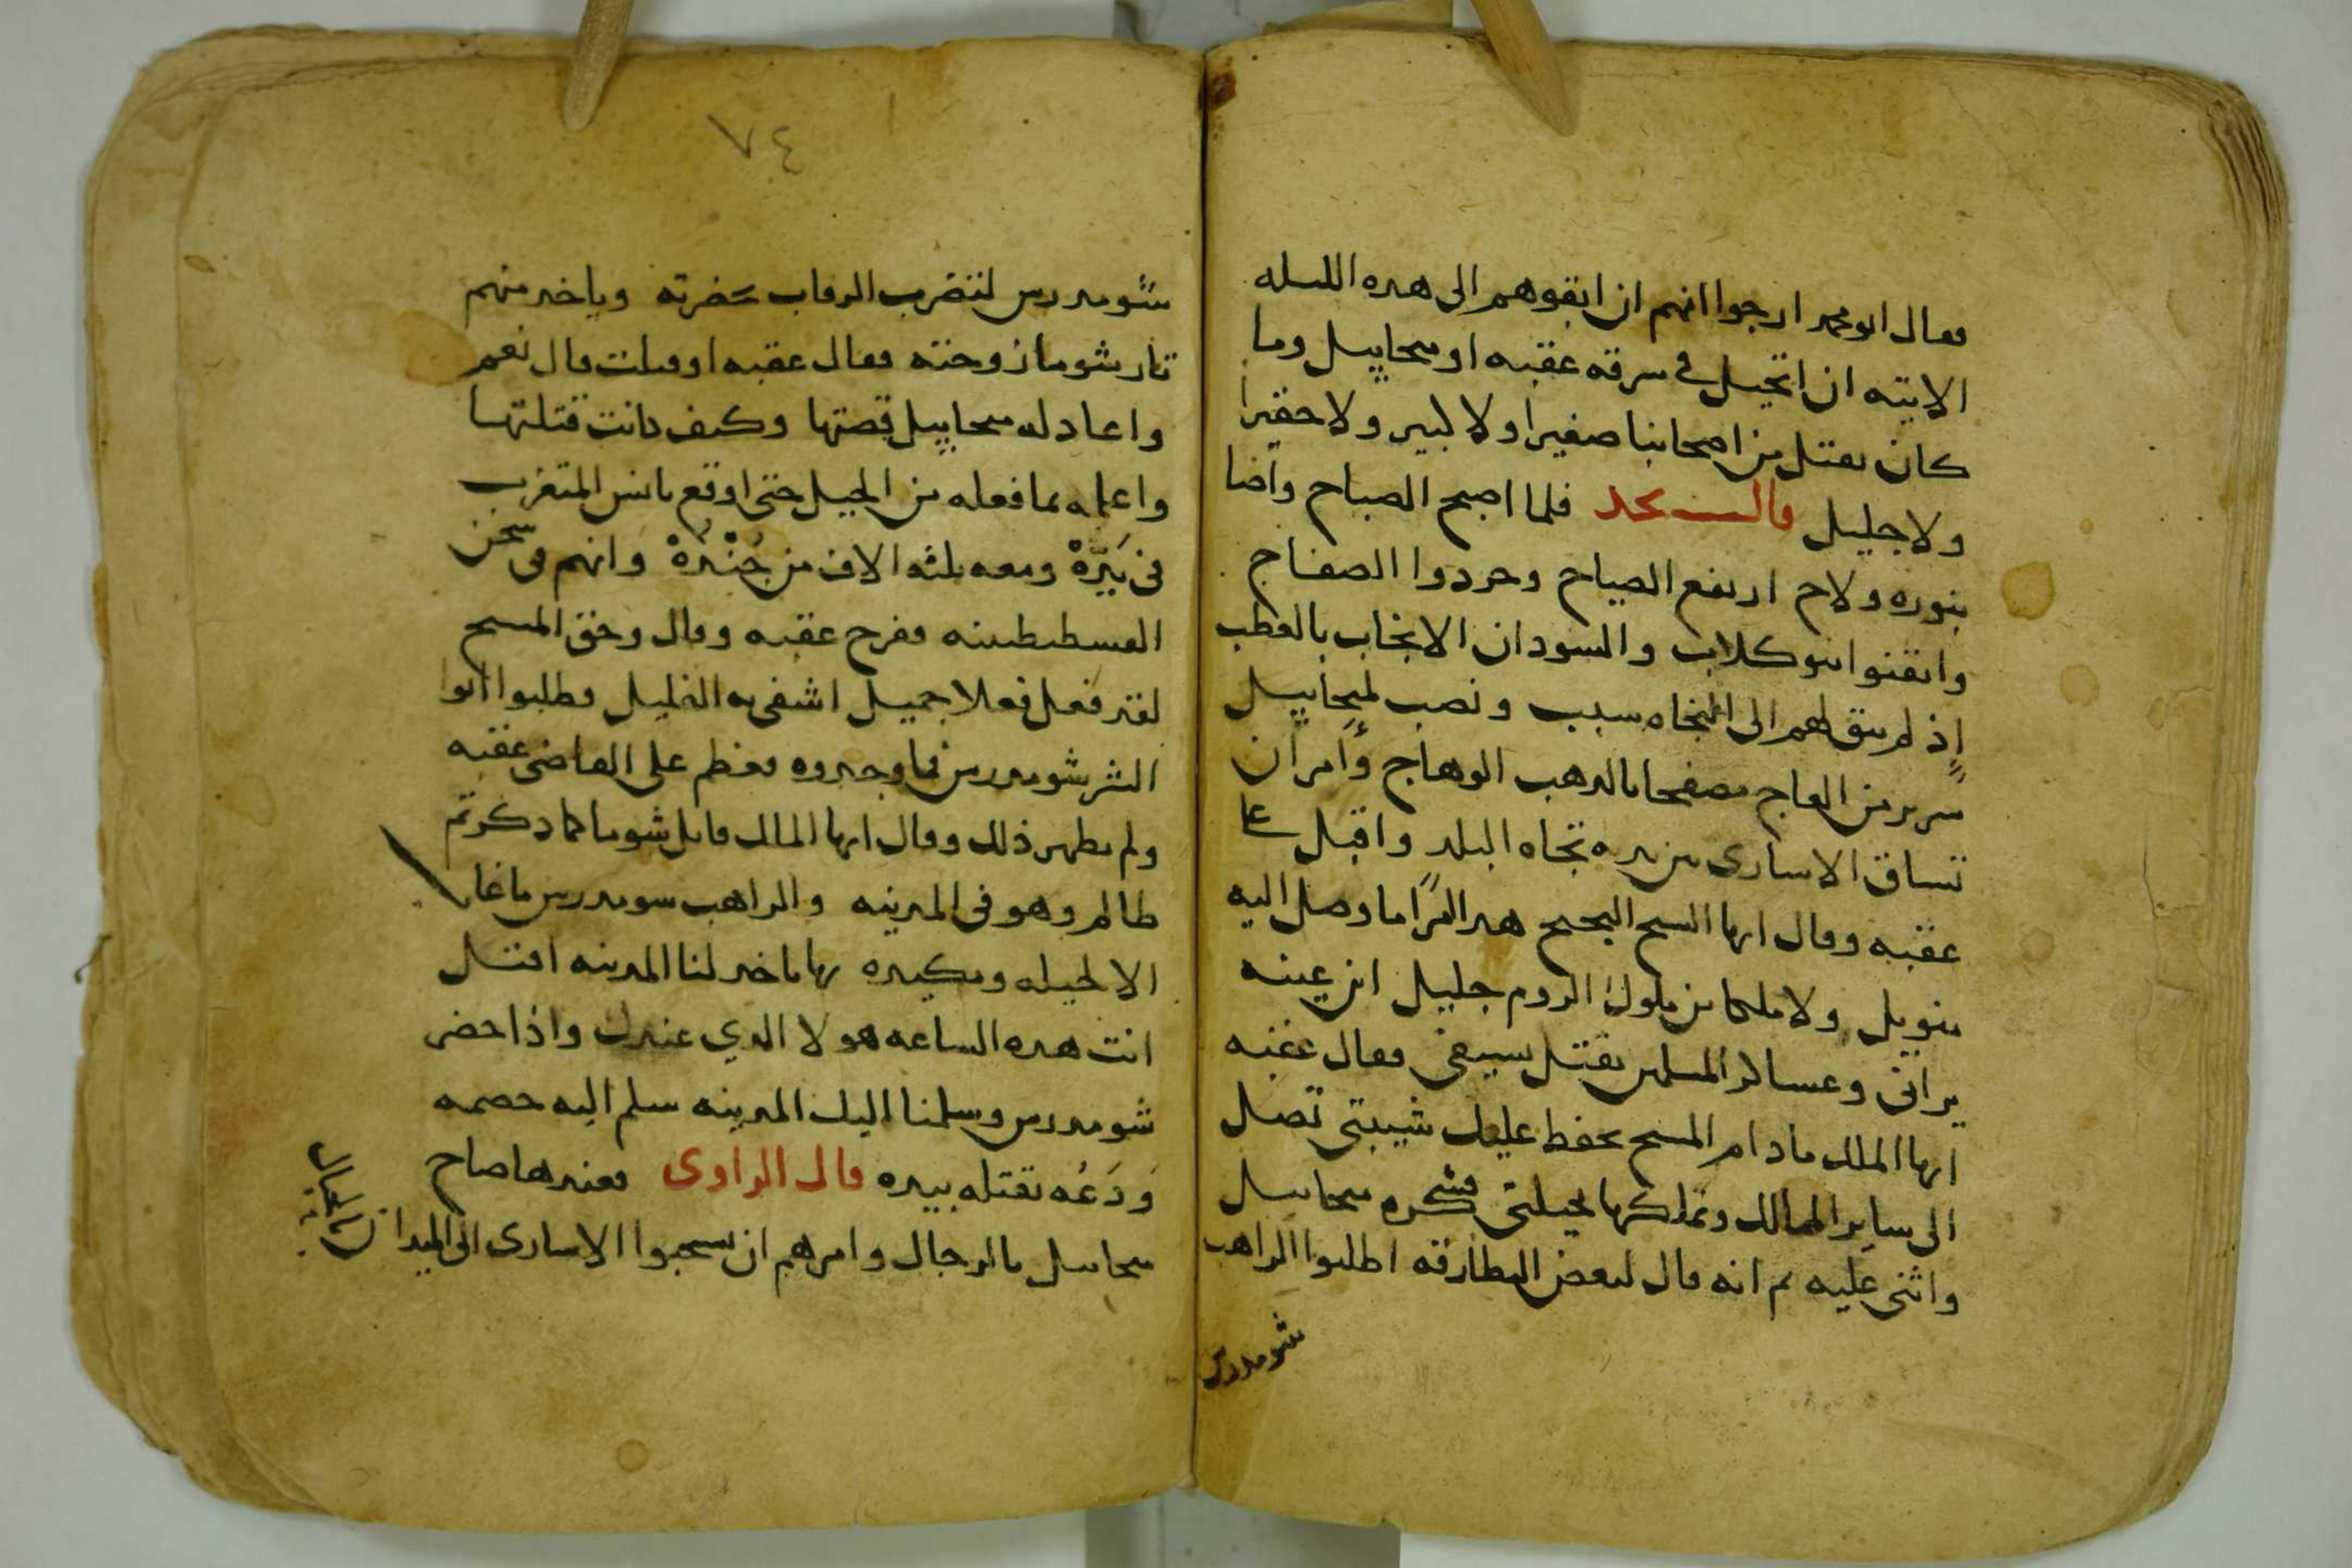 فقال ابو محمد ارجوا انهم ان ابقوهم الى هذه الليله
الاتيه ان اتحيل في سرقه عقبه او ميخاييل وما
كان يقتل من اصحابنا صغيرا ولا كبير ولا حقيرا
ولا جليل قال نجد فلما اصبح الصباح واضا
بنوره ولاح ارتفع الصياح وجردوا الصفاح
وايقنوا بنو كلاب والسودان الانجاب بالعطب
اذ لم يبق لهم الى النجاه سبب ونصب لميخاييل
سرير من العاج مصفحا بالذهب الوهاج وامر ان
تساق الاسارى من يده تجاه البلد واقبل على
عقبه وقال ايها الشيخ هذا امرا ما وصل اليه
منويل ولا ملكا من ملوك الروم جليل ابن عينه
يراني وعساكر المسلمين يقتل سيفي فقال عقبه
ايها الملك ما دام المسيح يحفظ عليك شيبتي تصل
الى ساير الممالك وتملكها بحيلتي فشكره ميخاييل
واثنى عليه ثم انه قال لبعض البطارقه اطلبوا الراهب
شومدرس
٧٤
شومدرس لتضرب الرقاب بحضرته وياخذ منهم
تار شوما زوجته فقال عقبه او قتلت قال نعم
واعاد له ميخاييل قصتها وكيف كانت قتلتها
واعلمه بما فعله من الحيل حتى اوقع بانس المتغرب
في يَدّهْ ومعه ثلثه الاف من جُنْدُهْ وانهم في سجن
القسطنطينه ففرح عقبه وقال وحق المسيح
لقد فعل فعلا جميل اشفى به الغليل وطلبوا
شومدرس فما وجدوه فعظم على القاضي عقبه
ولم يظهر ذلك وقال ايها الملك قاتل شوما كما ذكرتم
ظالم وهو في المدينه والراهب شومدرس ما غاب
الا لحيله ومكيده بها ياخذ لنا المدينه اقتل
انت هذه الساعه هولا الذي عندك واذا حضر
شومدرس وسلمنا اليك المدينه سلم اليه خصمه
وَدَعُه يقتله بيده قال الراوى فعندها صاح
ميخاييل بالرجال وامرهم ان يسحبوا الاسارى الى الميدان